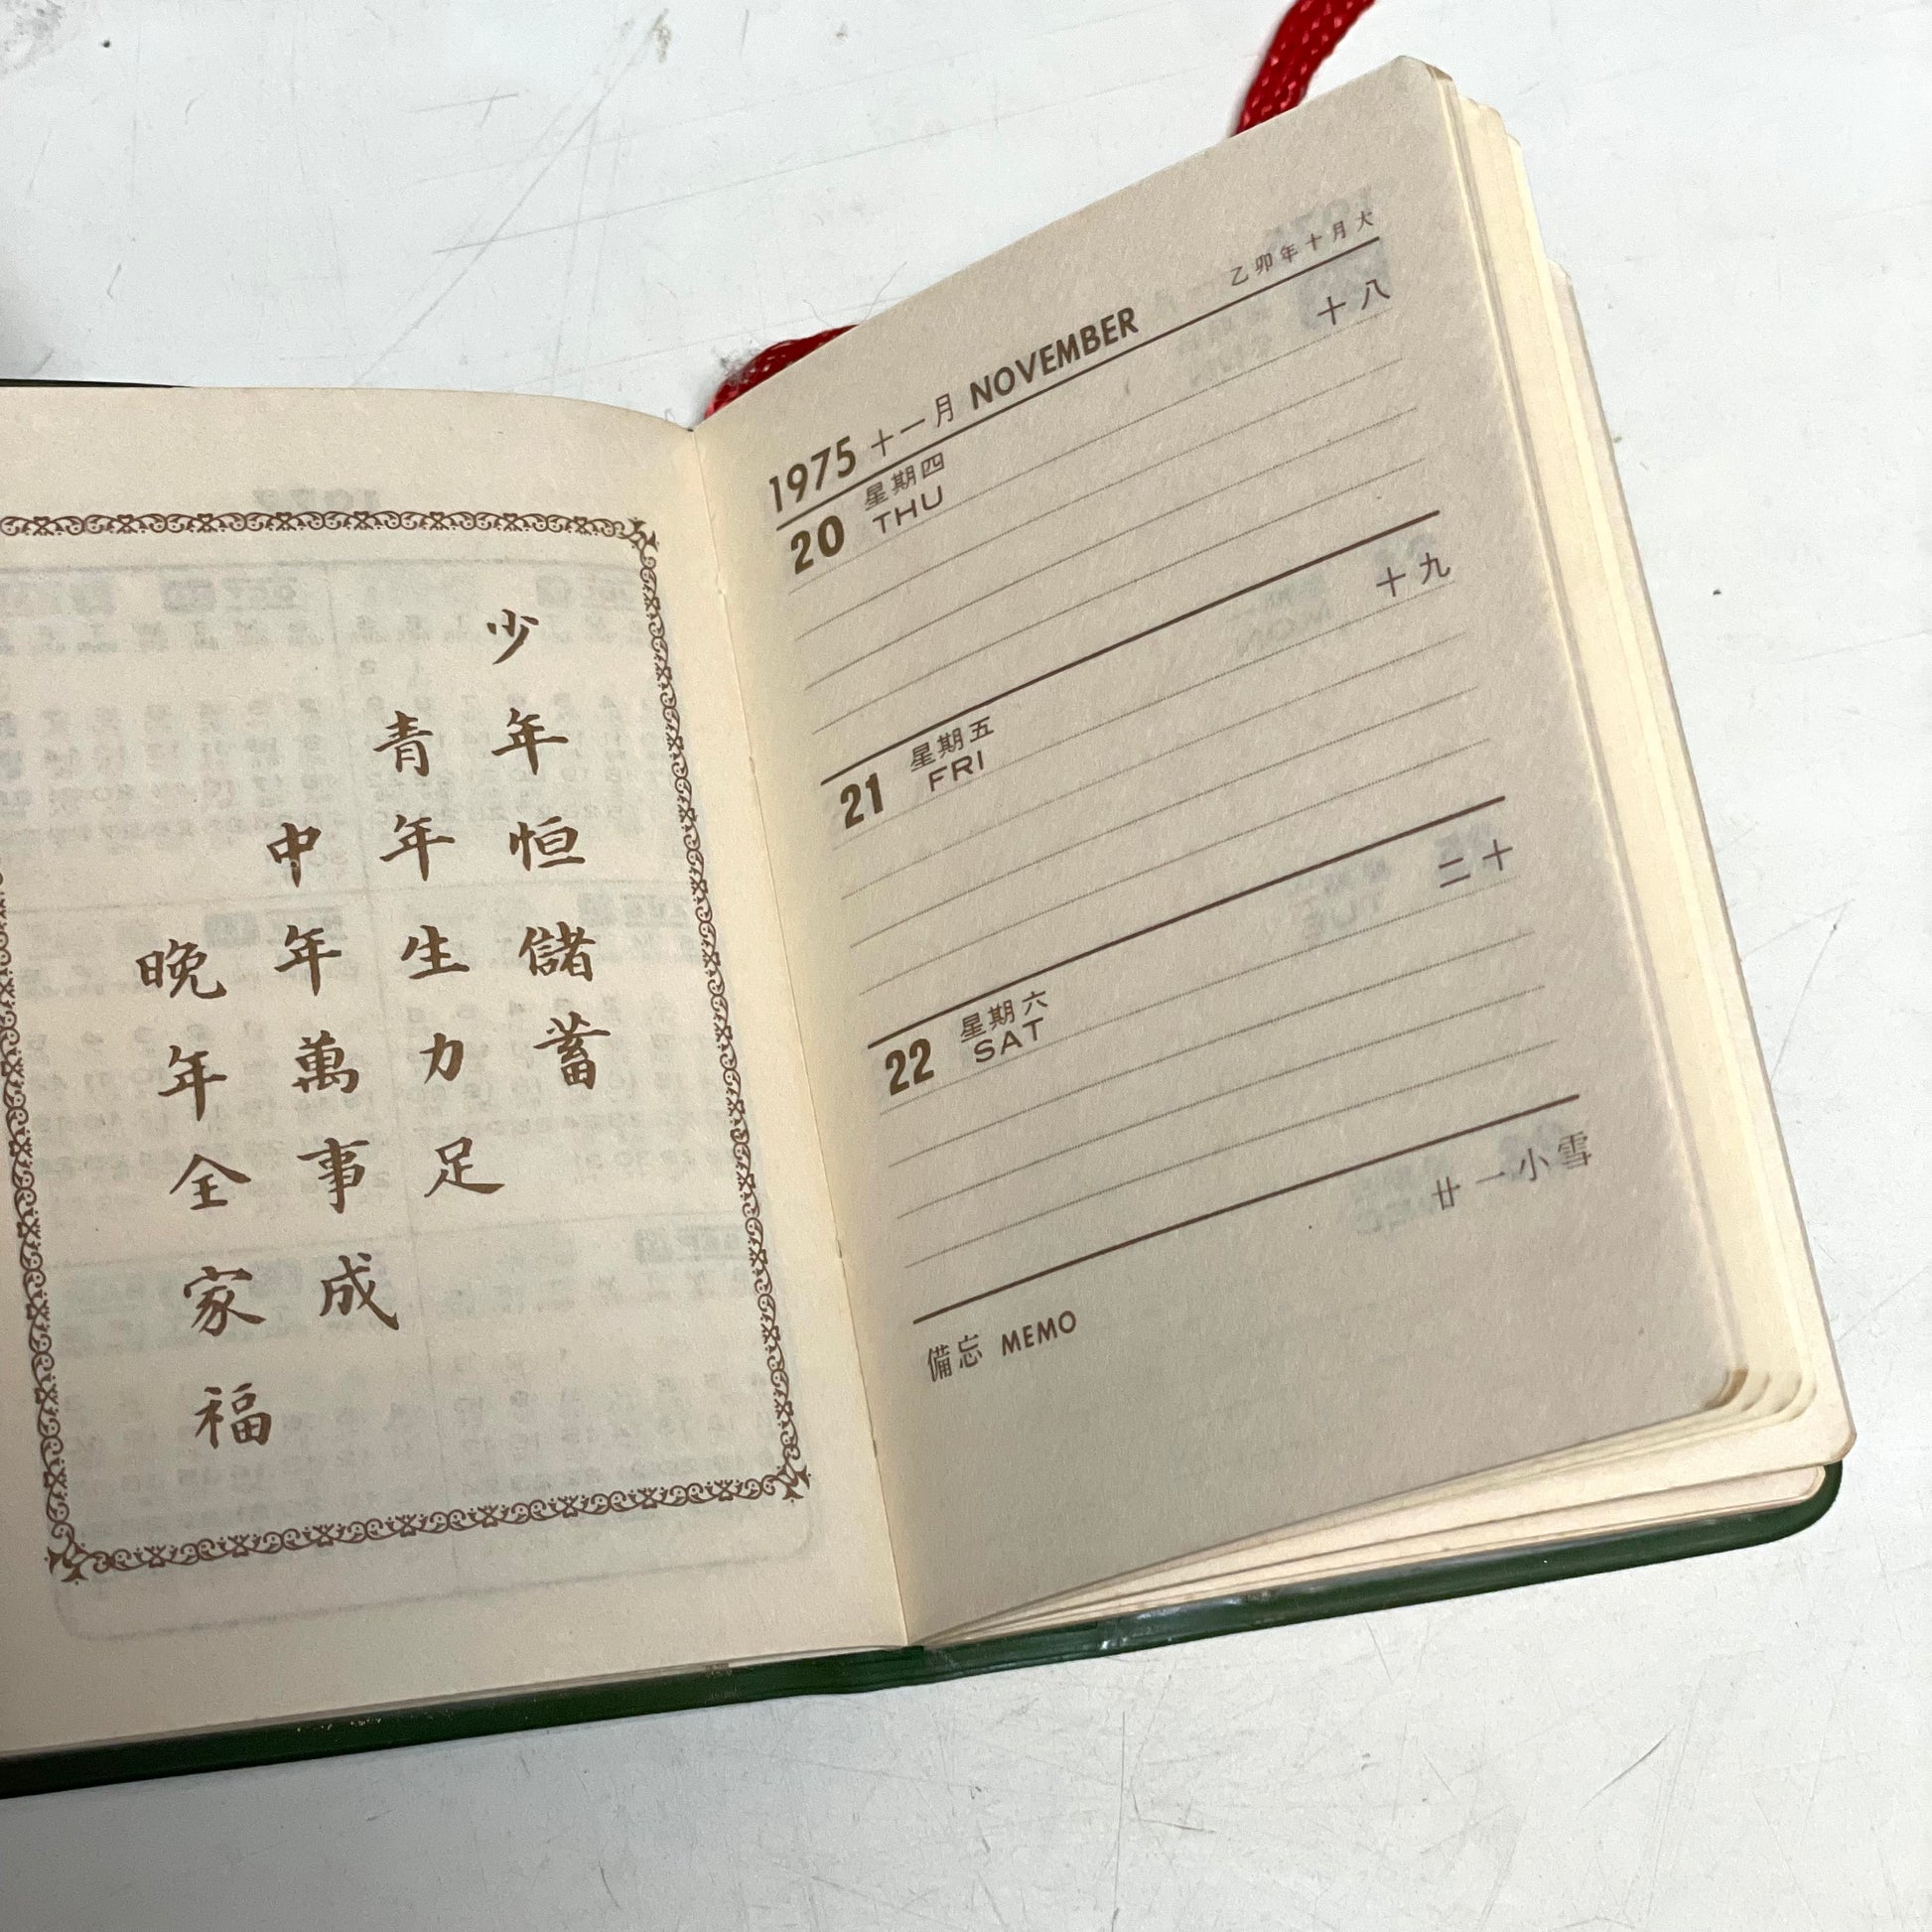 少年恒儲蓄
青年生力足
中年萬事成
晚年全家福
1975 十一月 NOVEMBER 乙卯年十月大
20 星期四 十八
THU
21 星期五 十九
FRI
22 星期六 二十
SAT
備忘 MEMO 廿一小雪